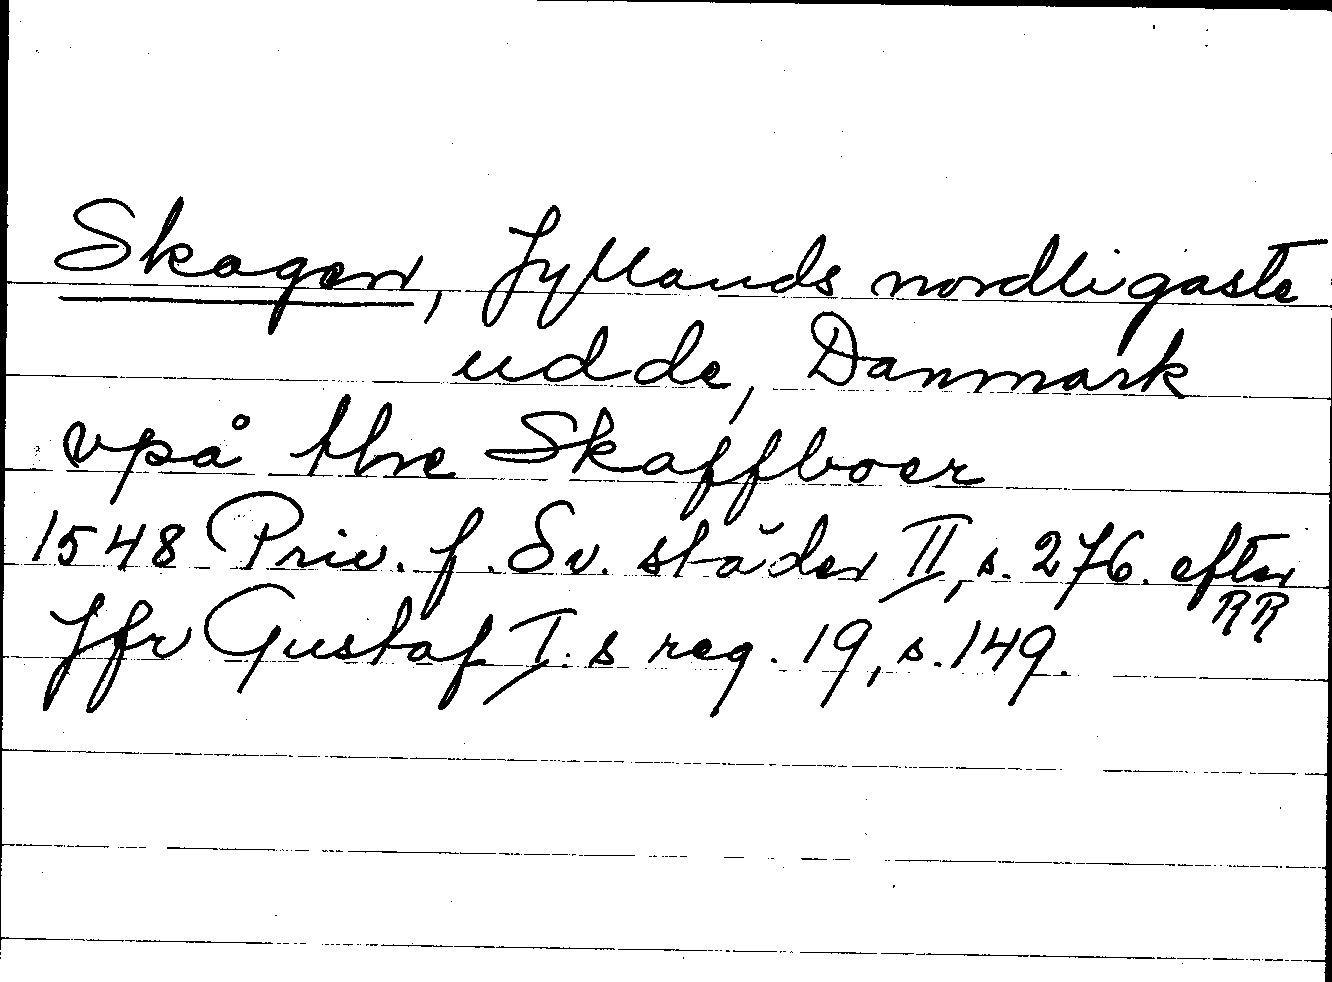 Skagen, Jyllands nordligaste
udde, Danmark
vpå thre Skaffboer
1548 Priv. f. Sv. städer II, s. 276. efter
RR
Jfr Gustaf I:s reg. 19, s. 149.